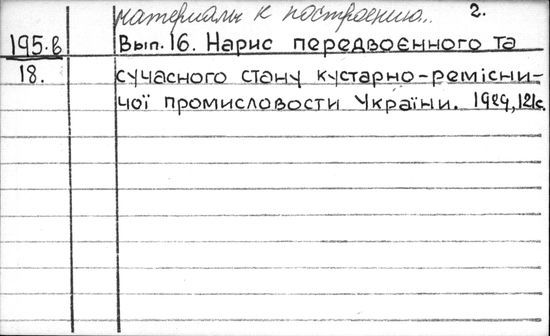 материалы к построению.. 2.
195.в Вып. 16. Нарис передвоєнного та
18. сучасного стану кустарно-ремісни-
чої промисловости України. 1929, 121с.